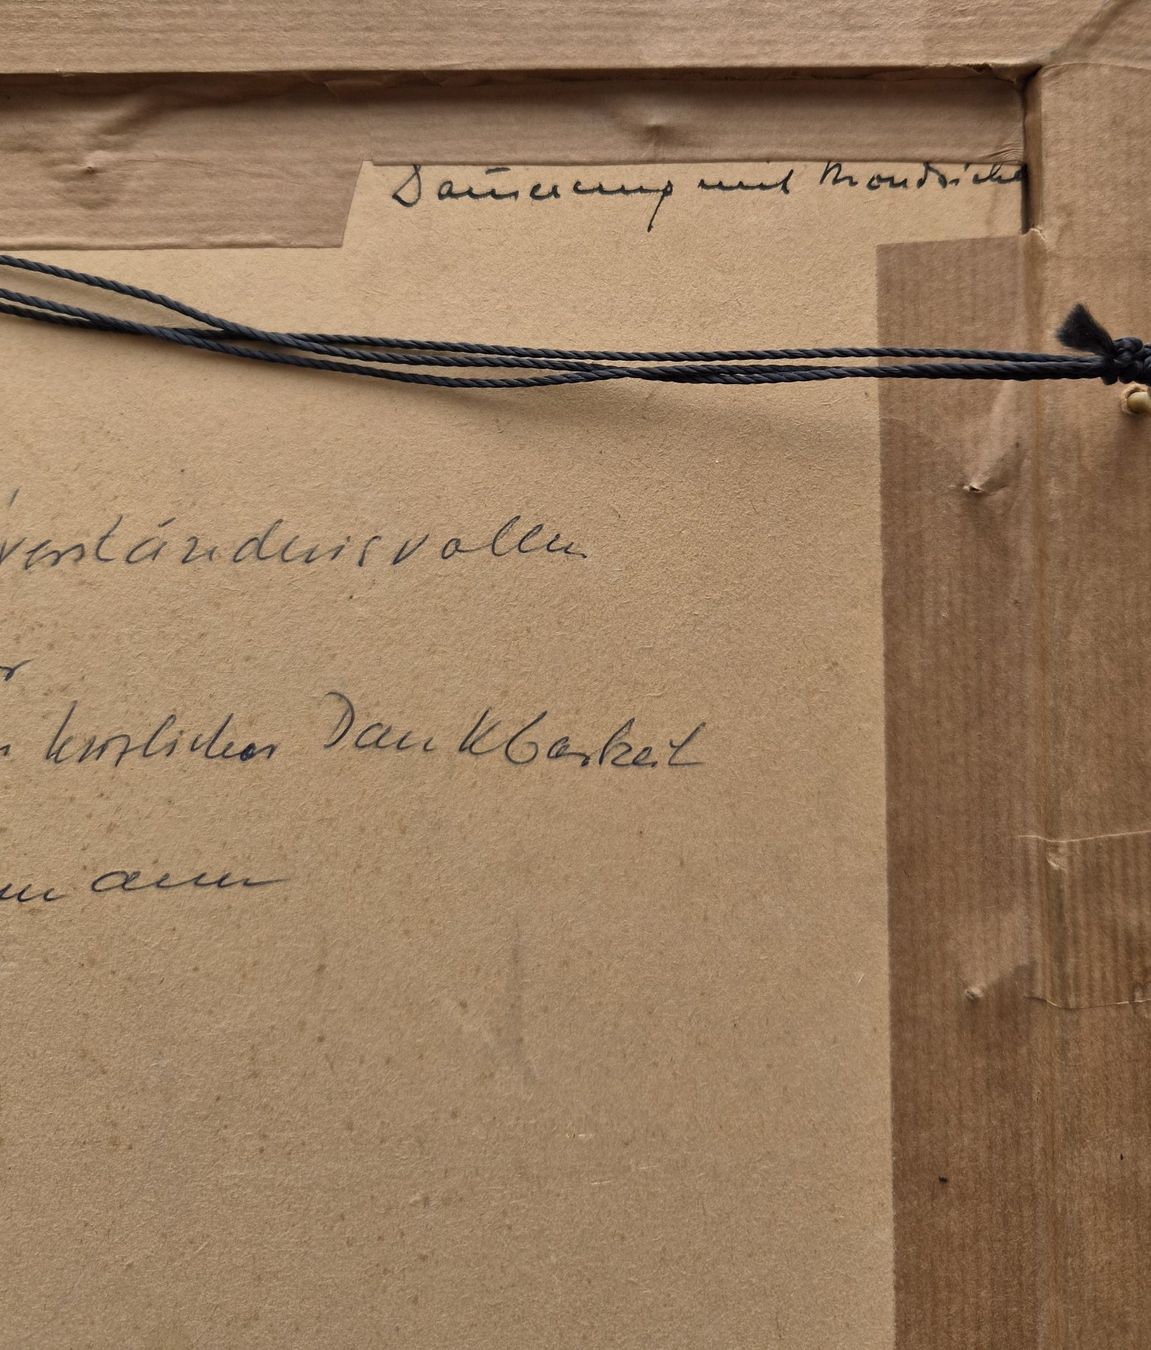 Dämmerung mit Mondsichel
verständnisvollen
r
herzlicher Dankbarkeit